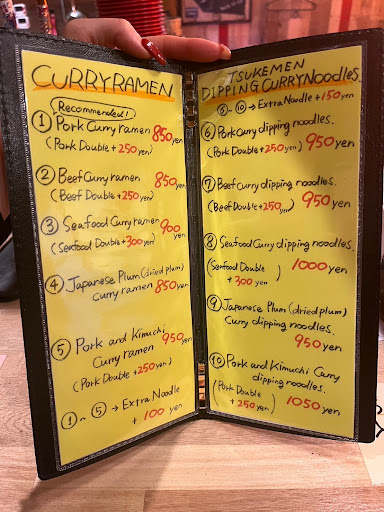 CURRYRAMEN
Recommended!
① Pork Curry ramen 850yen
(Pork Double + 250 yen)
② Beef Curry ramen 850yen
(Beef Double + 250 yen)
③ Seafood Curry ramen 900 yen
(Seafood Double + 300 yen)
④ Japanese Plum (dried plum)
curry ramen 850yen
⑤ Pork and Kimuchi
Curry ramen 950yen
(Pork Double + 250yen)
① ~ ⑤ → Extra Noodle
+ 100 yen
TSUKEMEN
DIPPING CURRY Noodles.
⑥ ~ ⑩ → Extra Noodle + 150yen
⑥ Pork curry dipping noodles.
(Pork Double + 250 yen) 950yen
⑦ Beef curry dipping noodles.
(Beef Double + 250yen) 950yen
⑧ Seafood Curry dipping noodles.
(Seafood Double
+ 300 yen) 1000yen
⑨ Japanese Plum (dried plum)
Curry dipping noodles.
950yen
⑩ Pork and Kimuchi Curry
dipping noodles.
(Pork Double
+ 250yen) 1050yen